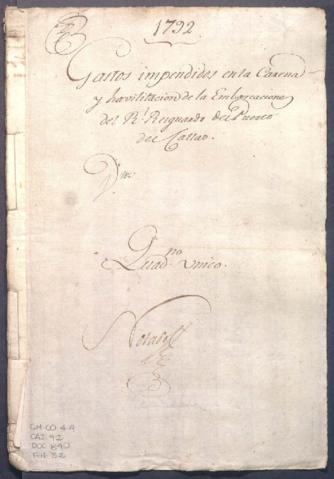 1792
Gastos impendidos en la Carena
y havilitacion de la Embarcacione
del Rl. Resguardo del Puerto
del Callao.
Quadno. Unico.
Notado
CAJ 92